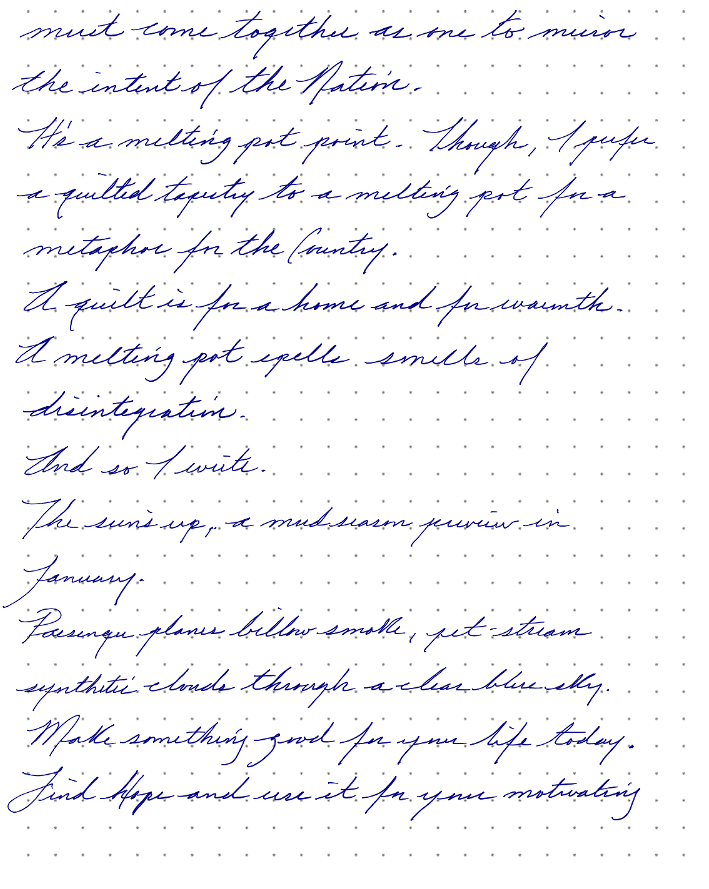 must come together as one to mirror
the intent of the Nation.
It's a melting pot point. Though, I prefer
a quilted tapestry to a melting pot for a
metaphor for the Country.
A quilt is for a home and for warmth.
A melting pot spells smells of
disintegration.
And so I write.
The sun's up, a mud season preview in
January.
Passenger planes billow smoke, jet-stream
synthetic clouds through a clear blue sky.
Make something good for your life today.
Find Hope and use it for your motivating